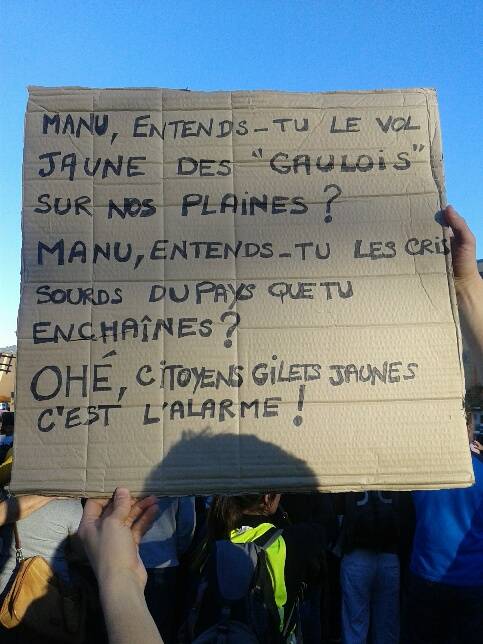 MANU, ENTENDS-TU LE VOL
JAUNE DES "GAULOIS"
SUR NOS PLAINES ?
MANU, ENTENDS-TU LES CRIS
SOURDS DU PAYS QUE TU
ENCHAÎNES ?
OHÉ, CITOYENS GILETS JAUNES
C'EST L'ALARME !